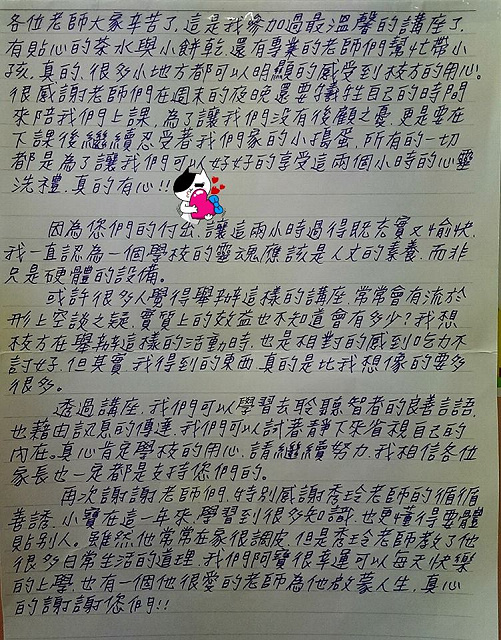 各位老師大家辛苦了,這是我參加過最溫馨的講座了,
有貼心的茶水與小餅乾,還有專業的老師們幫忙帶小
孩,真的,很多小地方都可以明顯的感受到校方的用心。
很感謝老師們在週末的夜晚還要犧牲自己的時間
來陪我們上課,為了讓我們沒有後顧之憂,更是要在
下課後繼續忍受著我們家的小搗蛋,所有的一切
都是為了讓我們可以好好的享受這兩個小時的心靈
洗禮,真的有心!!
因為您們的付出,讓這兩小時過得既充實又愉快
我一直認為一個學校的靈魂,應該是人文的素養,而非
只是硬體的設備。
或許很多人覺得舉辦這樣的講座,常常會有流於
形上空談之疑,實質上的效益也不知道會有多少?我想
校方在舉辦這樣的活動時,也是相對的感到吃力不
討好,但其實,我得到的東西,真的是比我想像的要多
很多。
透過講座,我們可以學習去聆聽智者的良善言語,
也藉由訊息的傳達,我們可以試著靜下來省視自己的
內在。真心肯定學校的用心,請繼續努力,我相信各位
家長也一定都是支持您們的。
再次謝謝老師們,特別感謝秀玲老師的循循
善誘,小寶在這一年來,學習到很多知識,也更懂得要體
貼別人。雖然他常常在家很調皮,但是秀玲老師教了他
很多日常生活的道理,我們阿寶很幸運可以每天快樂
的上學,也有一個他很愛的老師為他啟蒙人生,真心
的謝謝您們!!